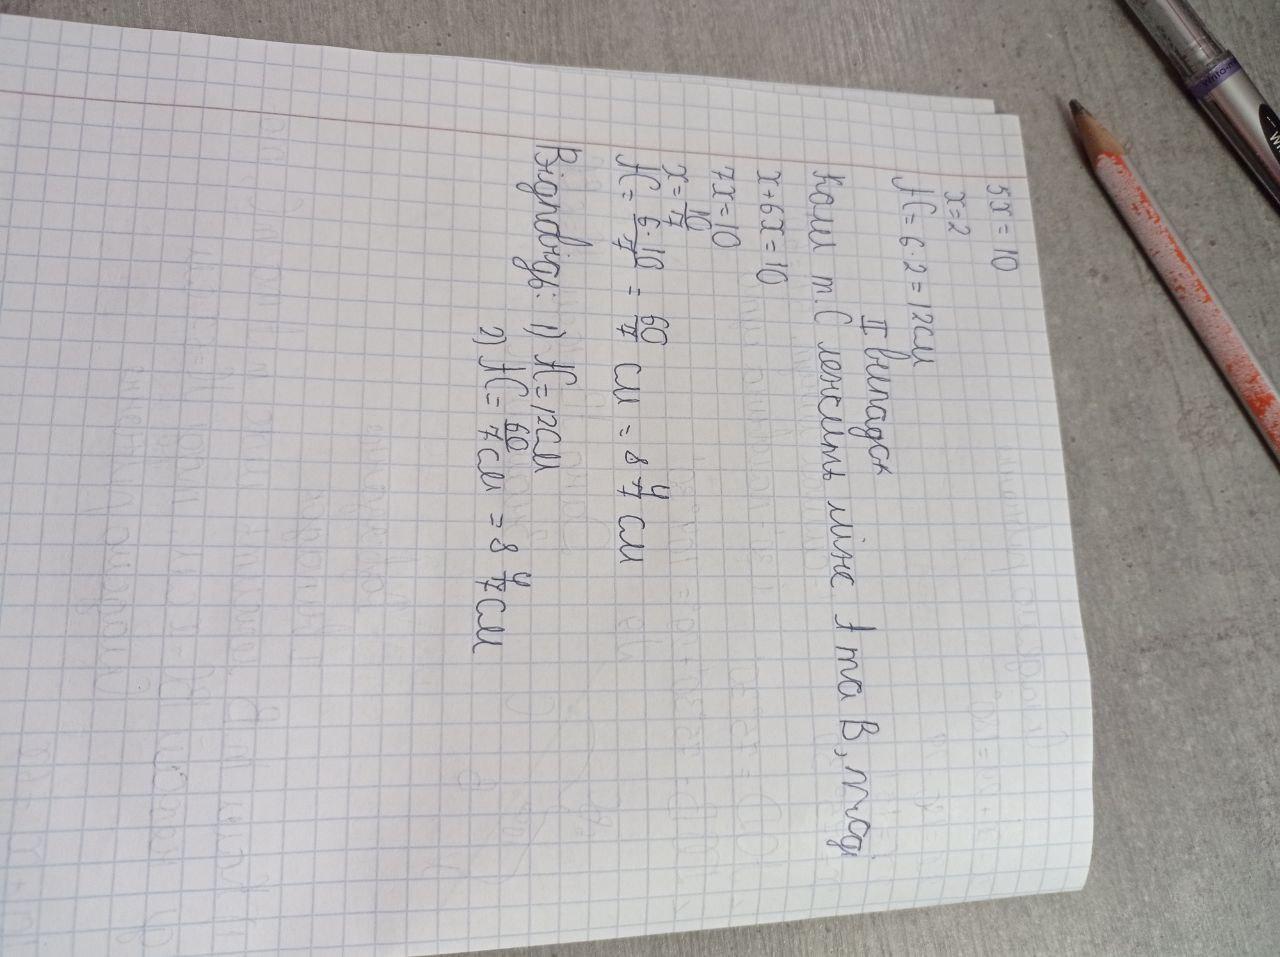 5x = 10
x = 2
AC = 6 · 2 = 12 см
II випадок
Коли т. С лежить між А та В, тоді
x + 6x = 10
7x = 10
x = 10/7
AC = 6·10/7 = 60/7 см = 8 4/7 см
Відповідь: 1) AC = 12 см
2) AC = 60/7 см = 8 4/7 см